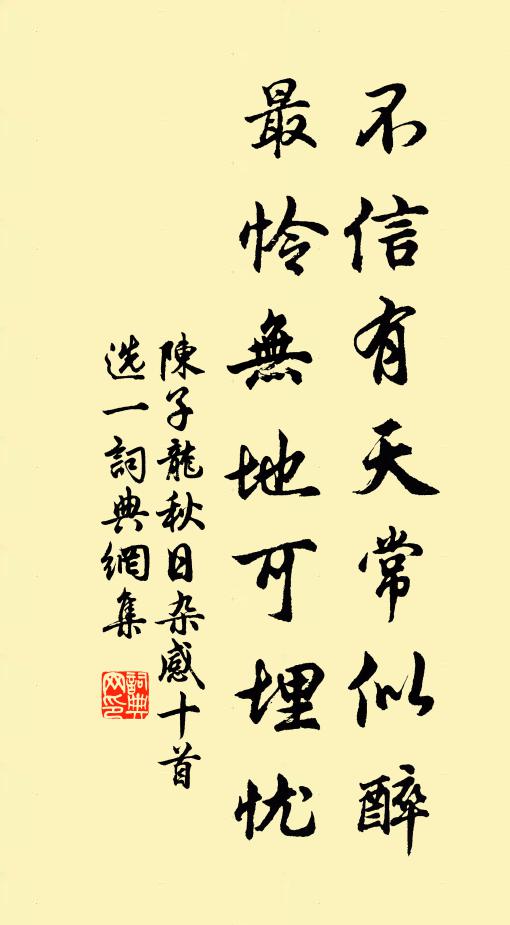 不信有天常似醉
最怜無地可埋忧
陳子龍秋日杂感十首
选一詞典網集
詞典网印